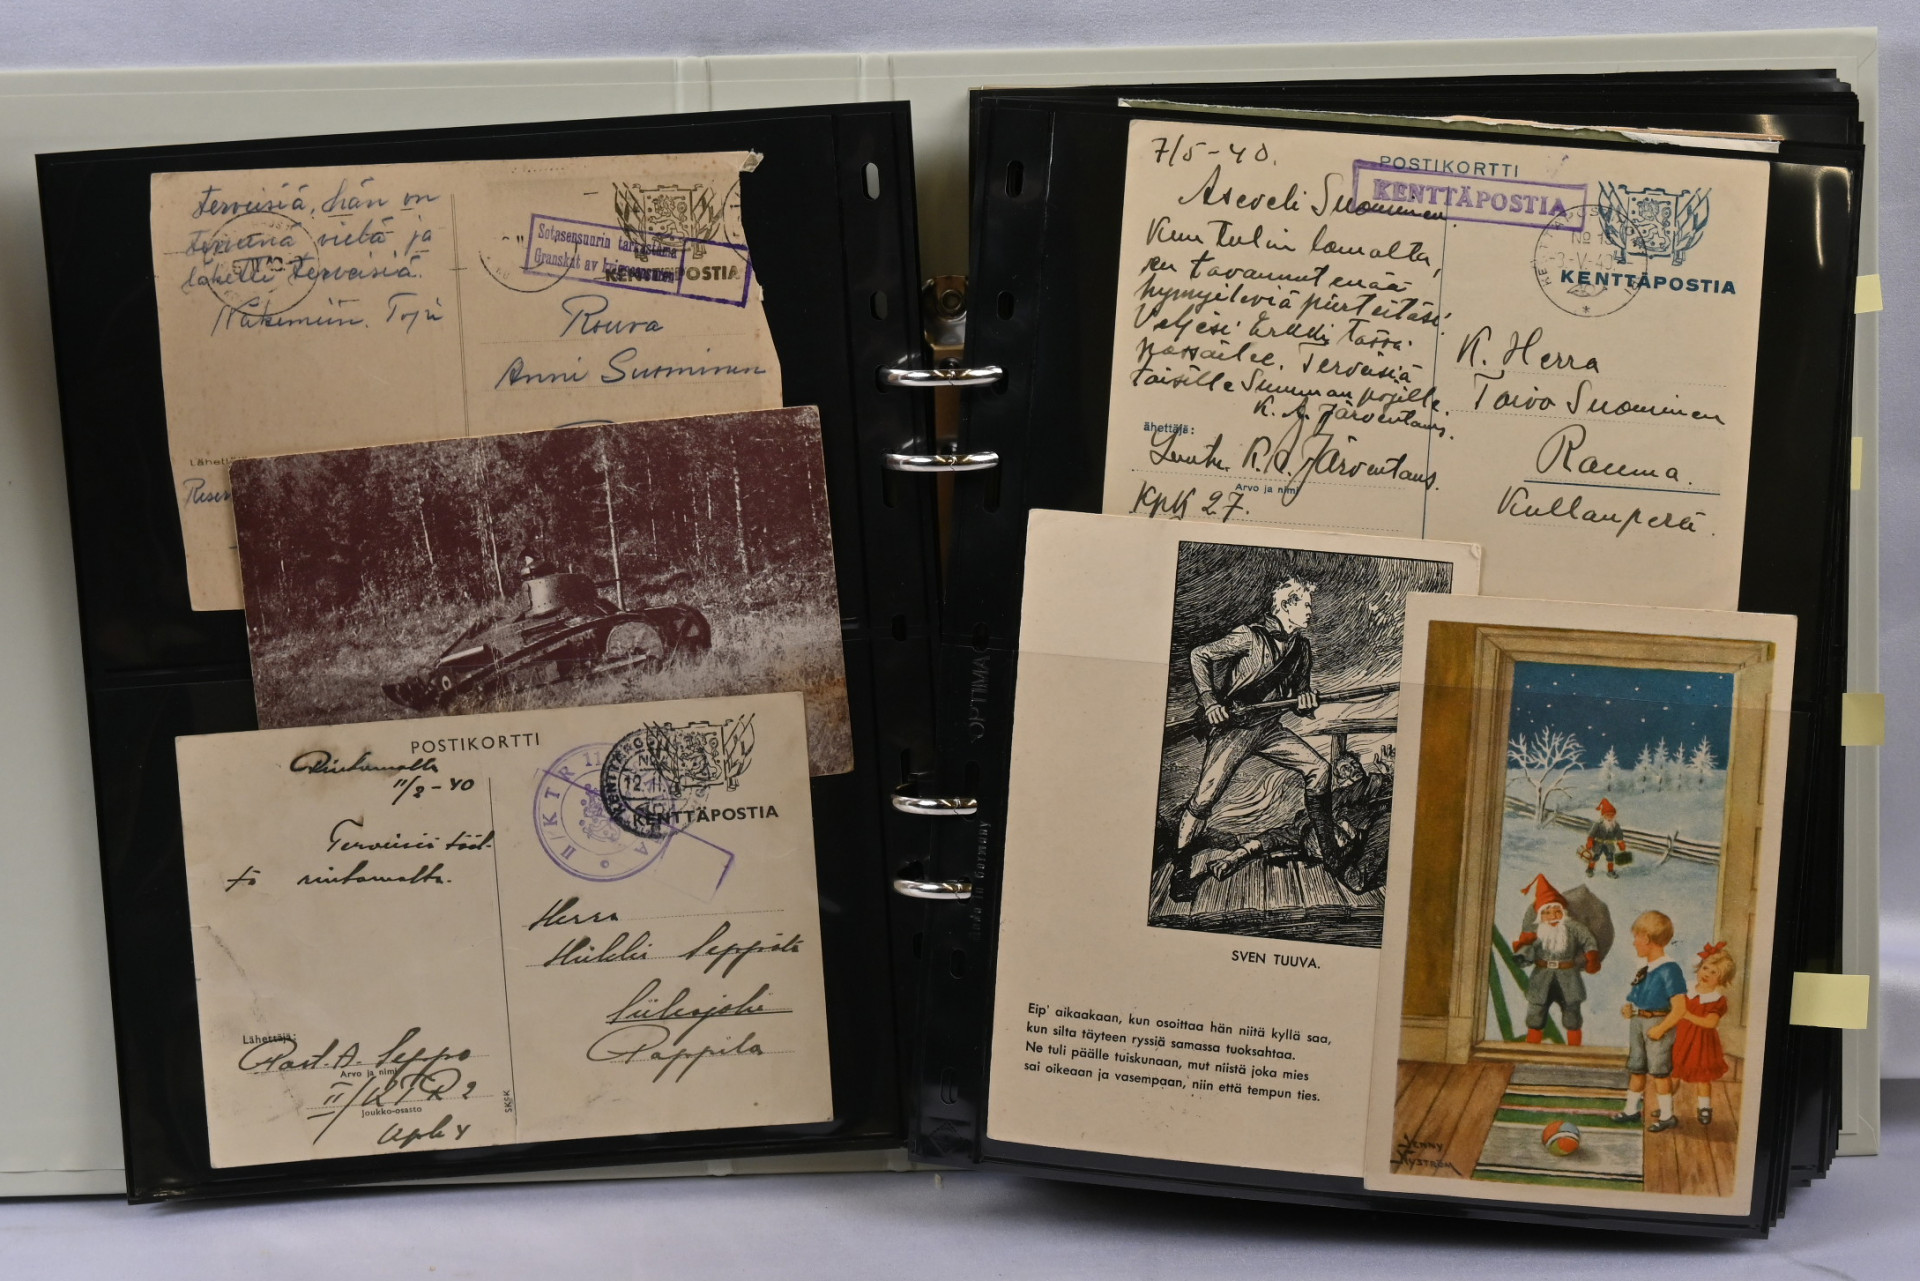 terveisiä, hän on
vielä ja
terveisiä.
Näkemiin.
Sotasensuurin tarkastama
Granskat av krigscensuren
KENTTÄPOSTIA
Rouva
Anni Suominen
Lähettäjä
POSTIKORTTI
Rintamalla
11/2-40
KENTTÄPOSTIA
Terveisiä tääl-
tä rintamalta.
Herra
Heikki Seppälä
Pappila
Lähettäjä:
A. Seppo
Arvo ja nimi
II/KTR 2
Joukko-osasto
SKSK
7/5-40.
POSTIKORTTI
KENTTÄPOSTIA
Aseveli Suominen
Kun tulin lomalta,
en tavannut enää
hymyileviä piirteitäsi.
Veljesi Erkki tässä
Terveisiä
toisille Summan pojille.
K. A. Järventaus.
KENTTÄPOSTIA
K. Herra
Toivo Suominen
Rauma.
Kullanperä.
ähettäjä:
Luutn. K. A. Järventaus.
Arvo ja nimi
KpK 27.
OPTIMA
Made in Germany
SVEN TUUVA.
Eip' aikaakaan, kun osoittaa hän niitä kyllä saa,
kun silta täyteen ryssiä samassa tuoksahtaa.
Ne tuli päälle tuiskunaan, mut niistä joka mies
sai oikeaan ja vasempaan, niin että tempun ties.
JENNY
NYSTRÖM